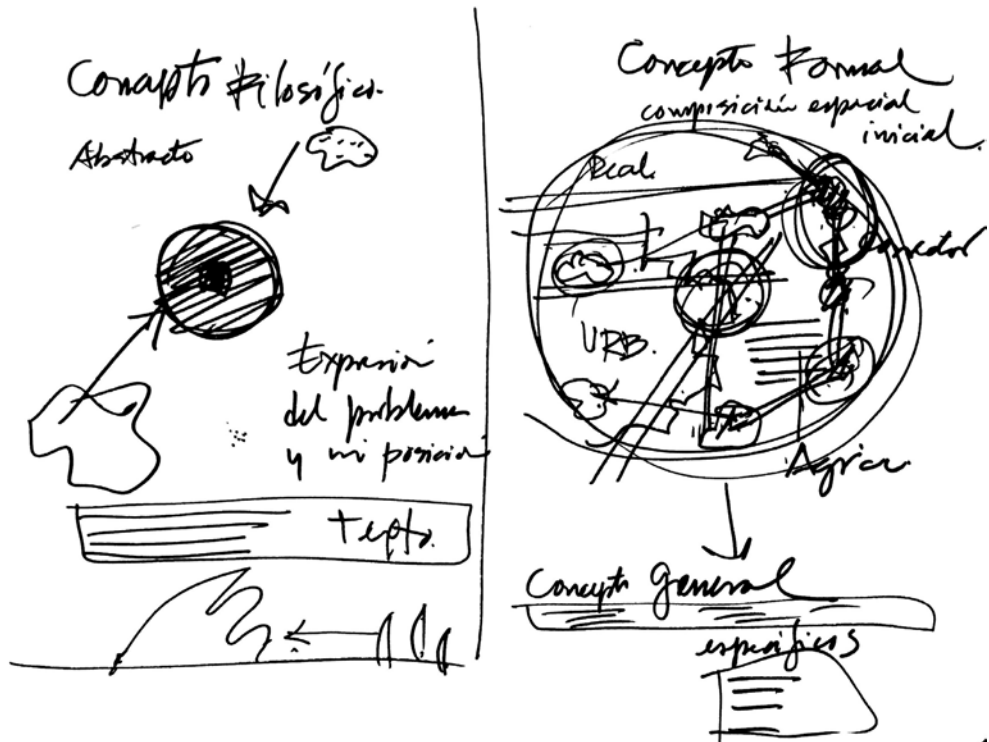 Concepto Filosófico.
Abstracto
Expresión
del problema
y mi posición
Texto.
Concepto Formal
composición espacial
inicial.
Real.
Corredor
URB.
Agrícr.
Concepto General
específicos